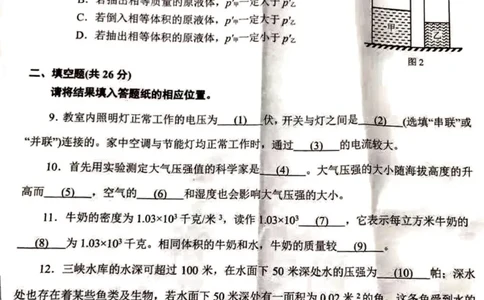 B. 若抽出相等质量的原液体，p′甲一定大于p′乙
C. 若倒入相等体积的原液体，p′甲一定大于p′乙
D. 若抽出相等体积的原液体，p′甲一定小于p′乙
甲
乙
图2
二、填空题(共26分)
请将结果填入答题纸的相应位置。
9. 教室内照明灯正常工作的电压为 (1) 伏,开关与灯之间是 (2) (选填“串联”或
“并联”)连接的。家中空调与节能灯均正常工作时，通过 (3) 的电流较大。
10. 首先用实验测定大气压强值的科学家是 (4) 。大气压强的大小随海拔高度的升
高而 (5) ，空气的 (6) 和湿度也会影响大气压强的大小。
11. 牛奶的密度为1.03×10³千克/米³，读作1.03×10³ (7) ，它表示每立方米牛奶的
(8) 为1.03×10³千克。相同体积的牛奶和水，牛奶的质量较 (9) 。
12. 三峡水库的水深可超过100米，在水面下50米深处水的压强为 (10) 帕；深水
处也存在着某些鱼类及生物，若水面下50米深处有一面积为0.02米²的鱼，这条鱼受到水的